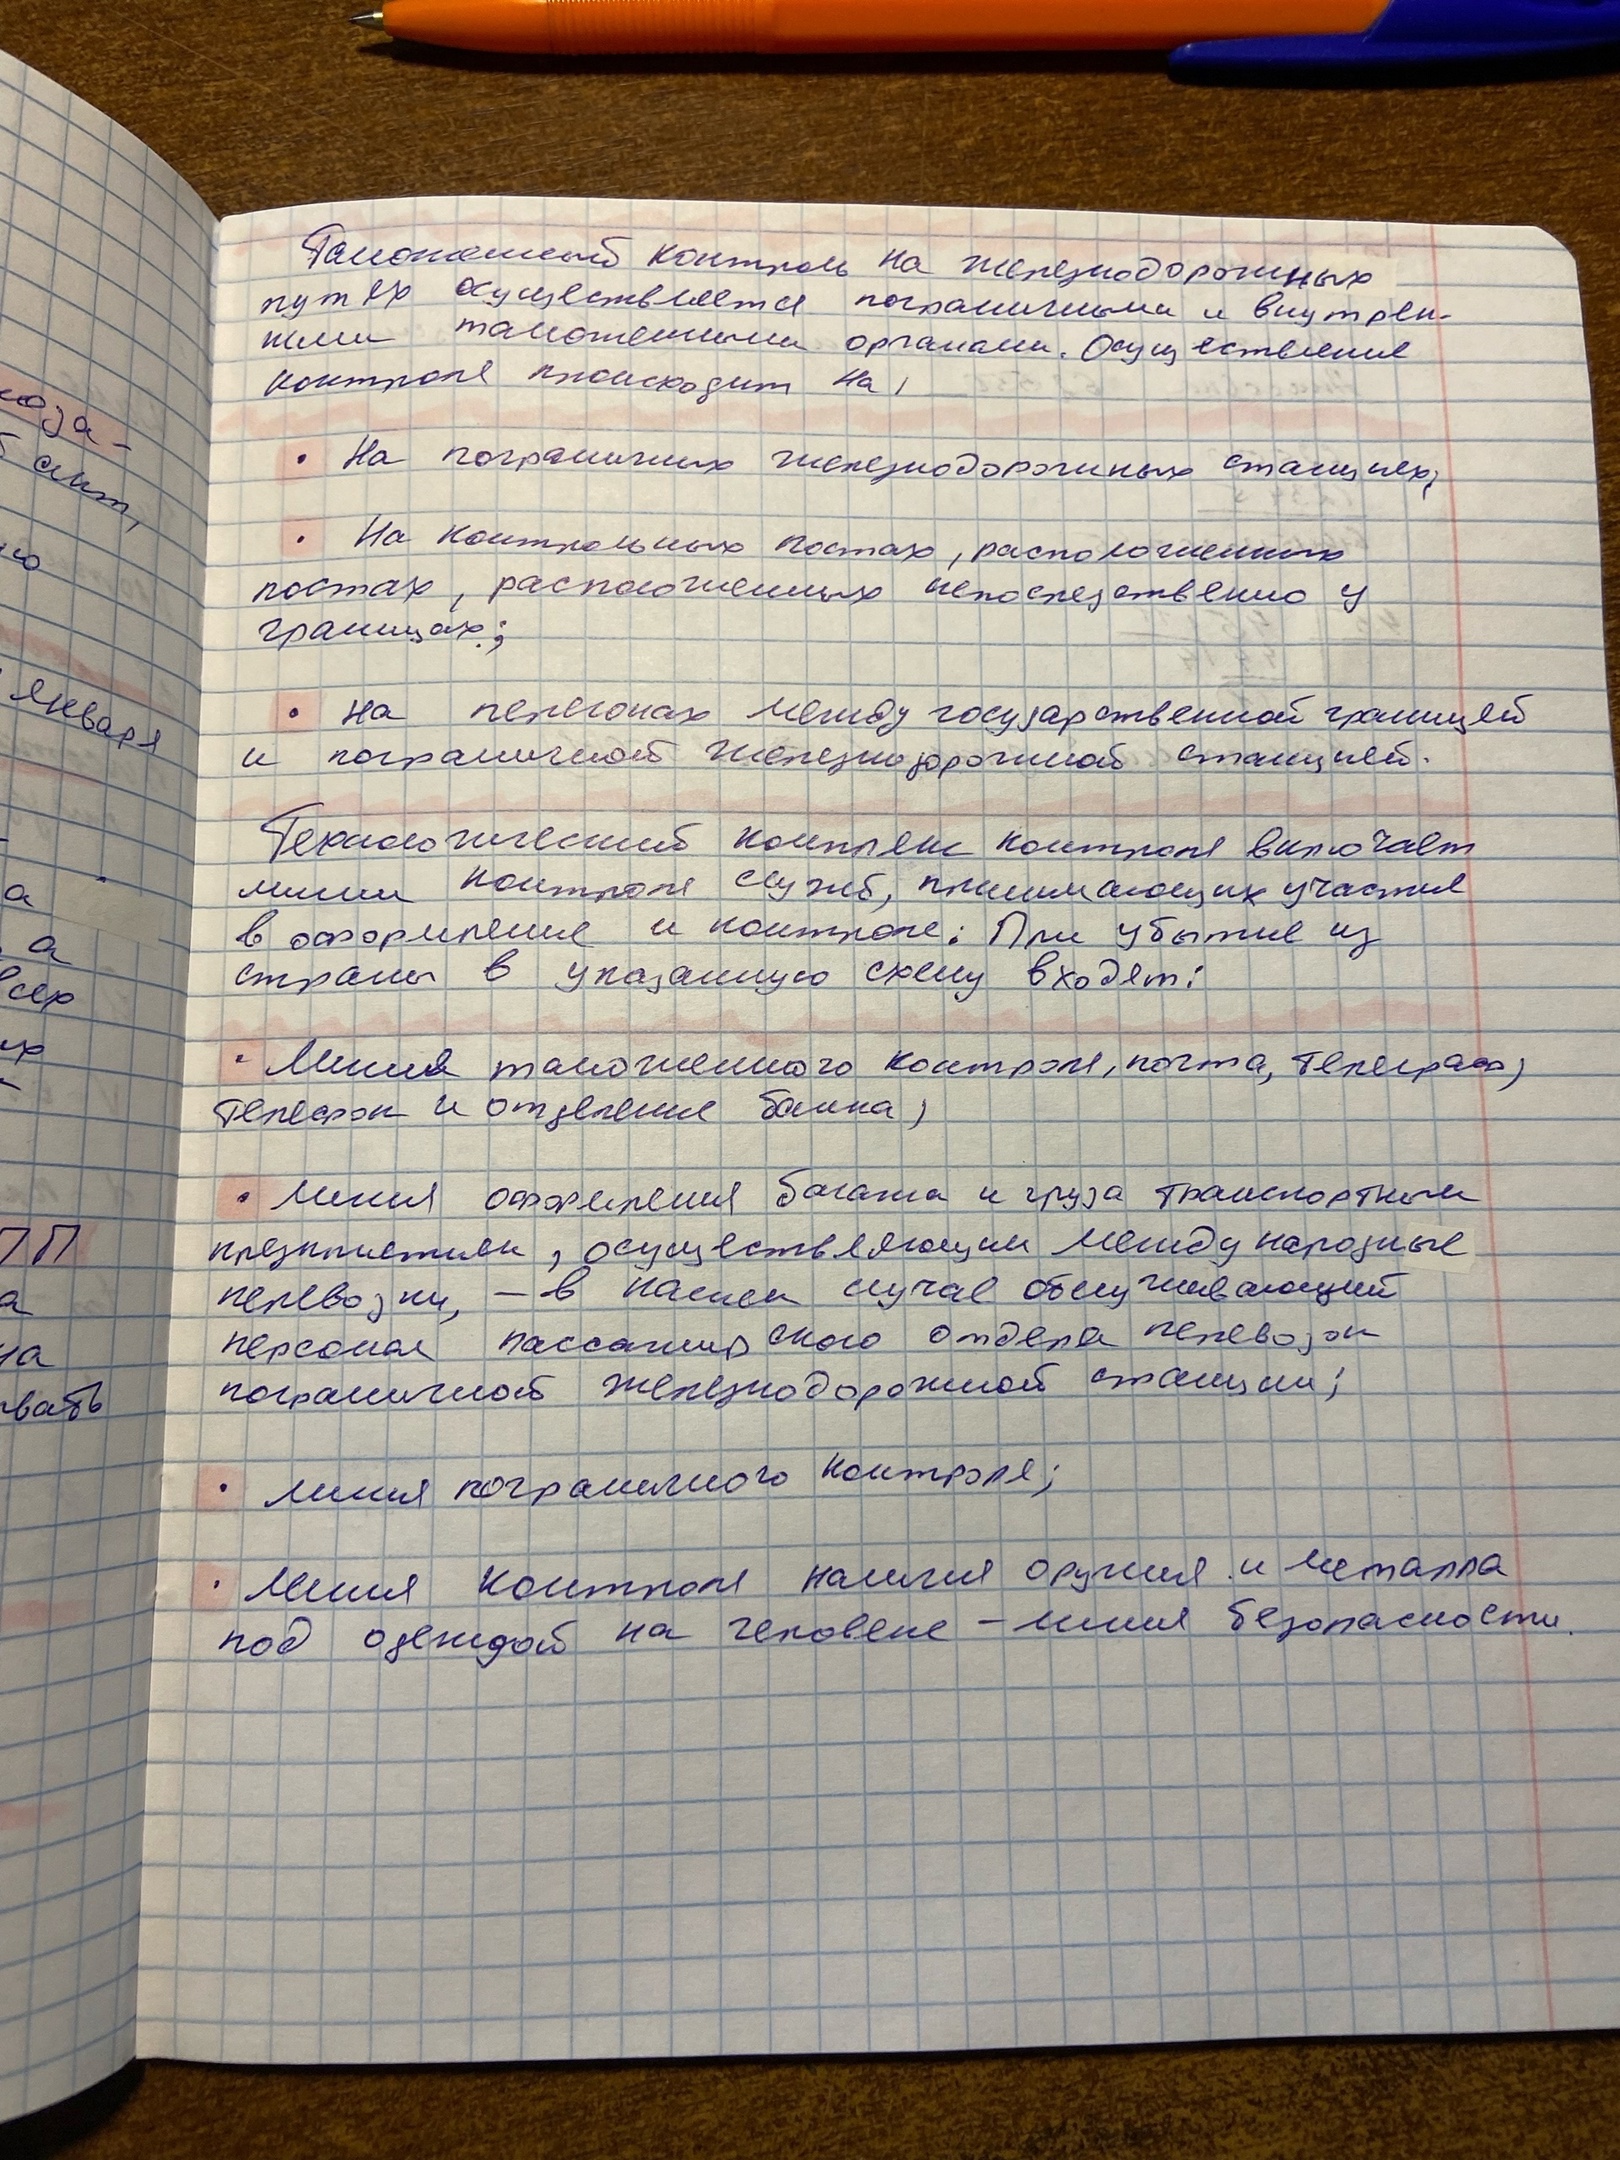 Таможенный контроль на железнодорожных
путях осуществляется пограничными и внутрен-
ними таможенными органами. Осуществление
контроля происходит на:
• На пограничных железнодорожных станциях;
• На контрольных постах, расположенных
постах, расположенных непосредственно у
границах;
• на перегонах между государственной границей
и пограничной железнодорожной станцией.
Технологический комплекс контроля включает
линии контроля служб, принимающих участие
в оформление и контроле: При убытие из
страны в указанную схему входят:
• Линия таможенного контроля, почта, телеграф,
телефон и отделение банка;
• линия оформления багажа и груза транспортным
предприятием, осуществляющим международные
перевозки, – в нашем случае обслуживающий
персонал пассажирского отдела перевозок
пограничной железнодорожной станции;
• линия пограничного контроля;
• линия контроля наличия оружия и металла
под одеждой на человеке – линия безопасности.
января
а
а
всех
их
ПП
а
на